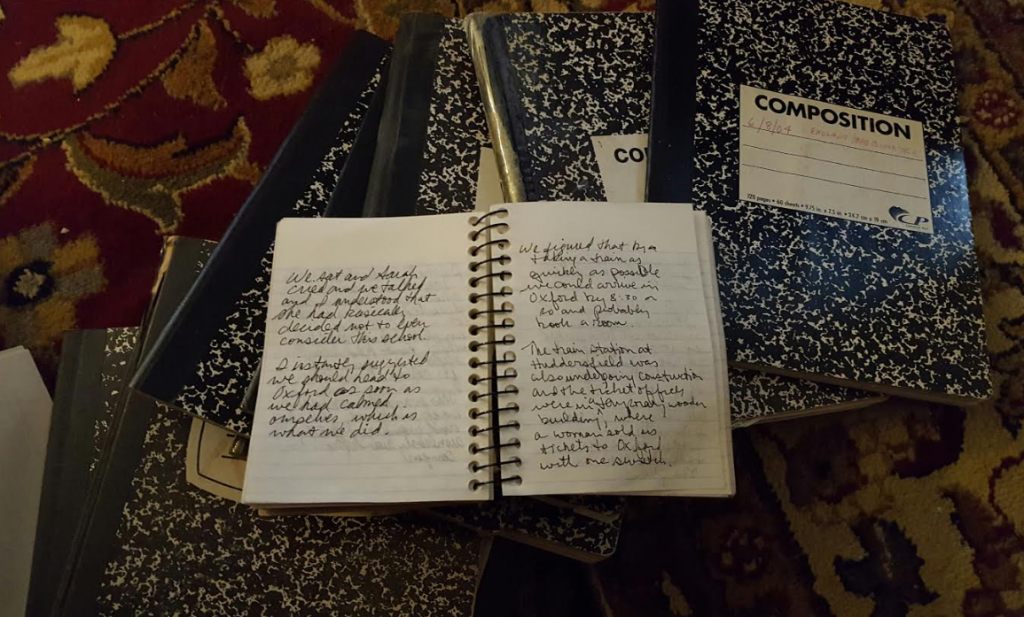 COMPOSITION
6/8/04 ENGLAND
120 pages • 60 sheets • 9.75 in. x 7.5 in. • 24.7 cm x 19 cm
CP
CO
We sat and Sarah
cried and we talked
and I understood that
she had basically
decided not to even
consider this school.
I instantly suggested
we should head to
Oxford as soon as
we had calmed
ourselves, which is
what we did.
We figured that by
taking a train as
quickly as possible
we could arrive in
Oxford by 8:30 or
so and probably
book a room.
The train station at
Huddersfield was
also undergoing construction
and the ticket offices
were in a very tiny wooden
building, where
a woman sold us
tickets to Oxford
with one switch.